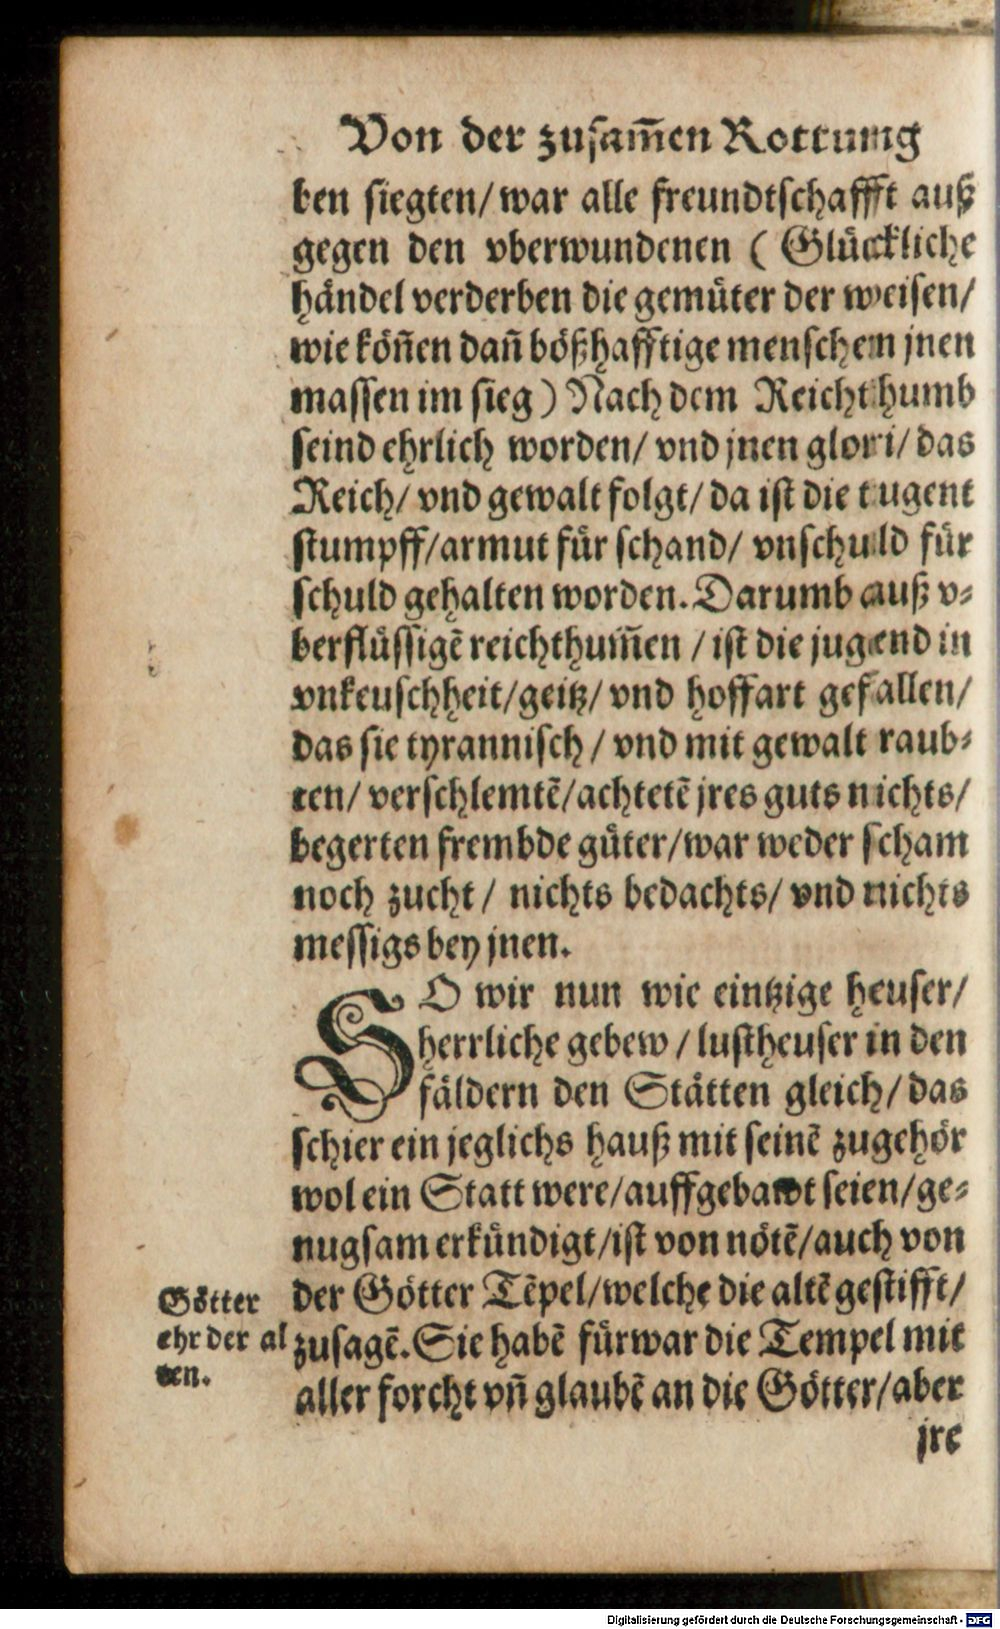 Von der zusam̃en Rottung
ben siegten/ war alle freundtschafft auß
gegen den vberwundenen ( Glückliche
händel verderben die gemüter der weisen/
wie köñen dañ bößhafftige menschen jnen
massen im sieg ) Nach dem Reichthumb
seind ehrlich worden/ vnd jnen glori/ das
Reich/ vnd gewalt folgt/ da ist die tugent
stumpff/armut für schand/ vnschuld für
schuld gehalten worden. Darumb auß v-
berflüssigẽ reichthum̃en / ist die jugend in
vnkeuschheit/geitz/ vnd hoffart gefallen/
das sie tyrannisch / vnd mit gewalt raub-
ten/ verschlemtẽ/achtetẽ jres guts nichts/
begerten frembde güter/war weder scham
noch zucht / nichts bedachts/ vnd nichts
messigs bey jnen.
SO wir nun wie eintzige heuser/
herrliche gebew / lustheuser in den
fäldern den Stätten gleich/ das
schier ein jeglichs hauß mit seinẽ zugehör
wol ein Statt were/auffgebawt seien/ge-
nugsam erkündigt/ist von nötẽ/auch von
der Götter Tẽpel/welche die altẽ gestifft/
zusagẽ. Sie habẽ fürwar die Tempel mit
aller forcht vñ glaubẽ an die Götter/aber
jre
Götter
ehr der al
ten.
Digitalisierung gefördert durch die Deutsche Forschungsgemeinschaft - DFG